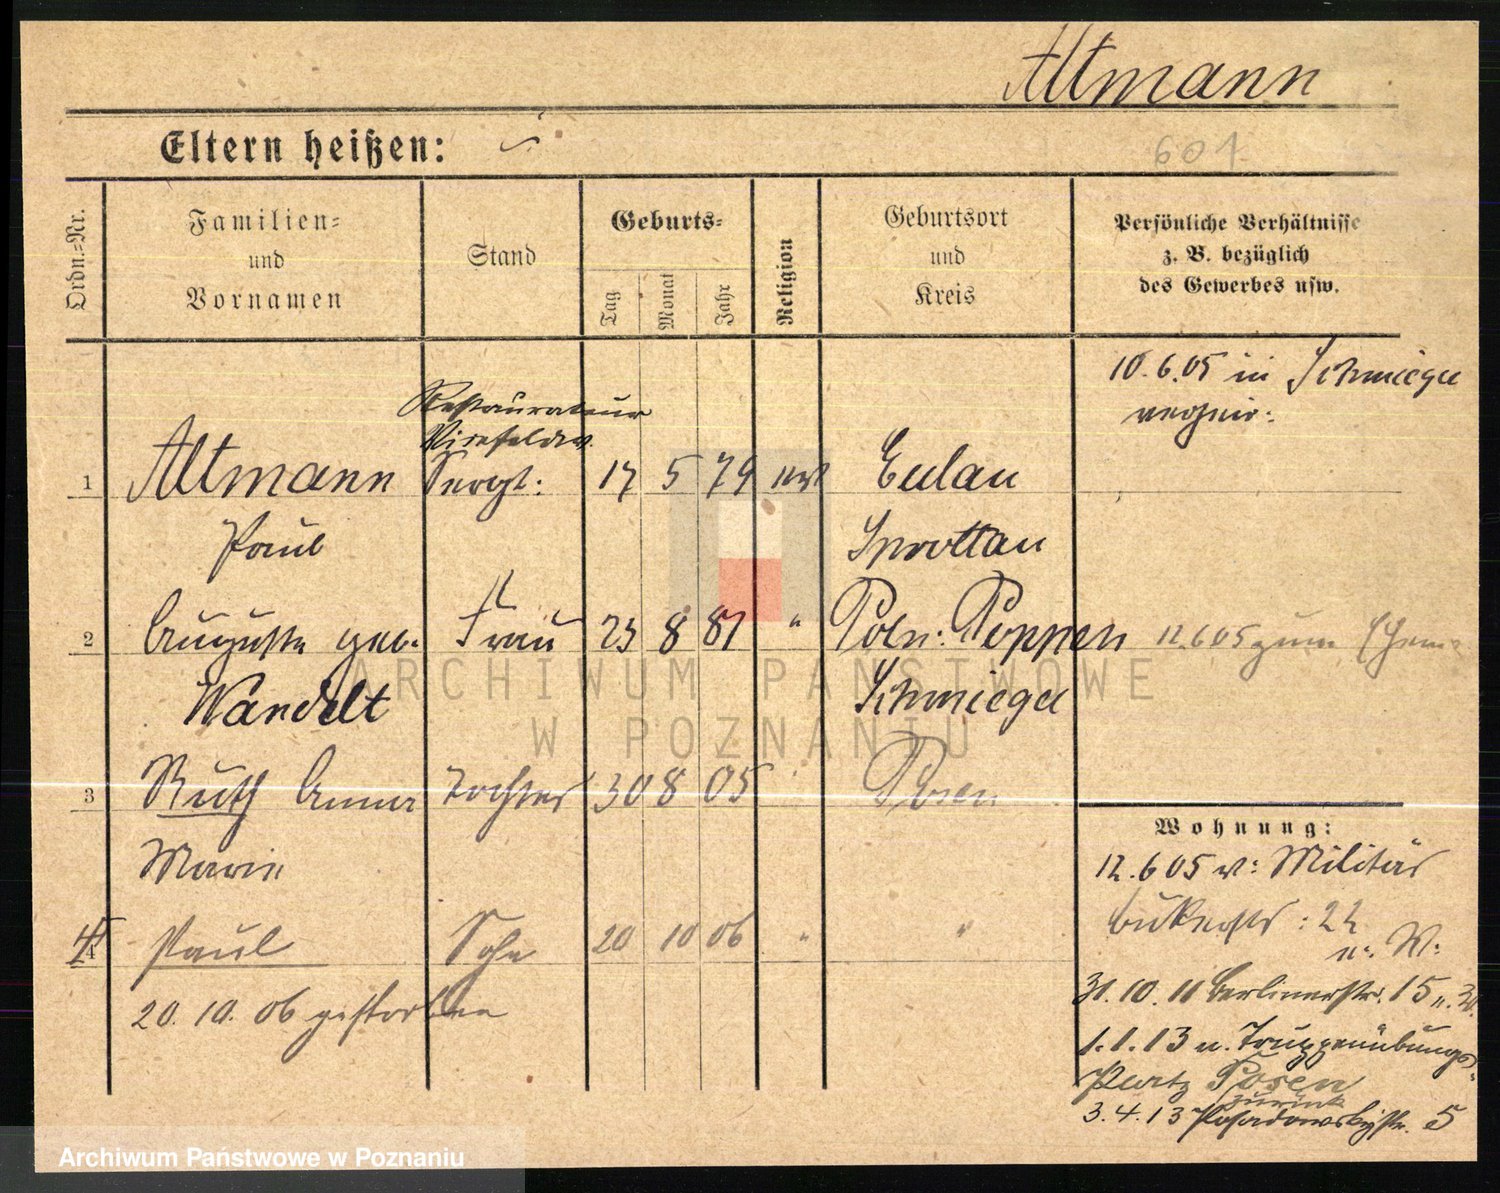 Altmann
Eltern heißen:
601
Ordn.=Nr.
Familien=
und
Vornamen
Stand
Geburts=
Tag
Monat
Jahr
Religion
Geburtsort
und
Kreis
Persönliche Verhältnisse
z. B. bezüglich
des Gewerbes usw.
10.6.05 in Schmiegel
Restaurateur
Vizefeldw.
1 Altmann Sergt: 17 5 79 Eulau
Paul Sprottau
2 Auguste geb. Frau 23 8 81 " Poln: Poppen 12.6 05 zum
Wandelt Schmiegel
3 Ruth Anna Tochter 30 8 05 " Posen
Marie
Wohnung:
12.6 05 v: Militär
4 Paul Sohn 20 10 06 " "
22
n. W:
20. 10. 06 gestorben
31. 10. 11 Berlinerstr. 15
1. 1. 13 n. Truppenübungs=
Platz Posen
zurück
3. 4. 13 Posadowskystr. 5
ARCHIWUM PAŃSTWOWE
W POZNANIU
Archiwum Państwowe w Poznaniu